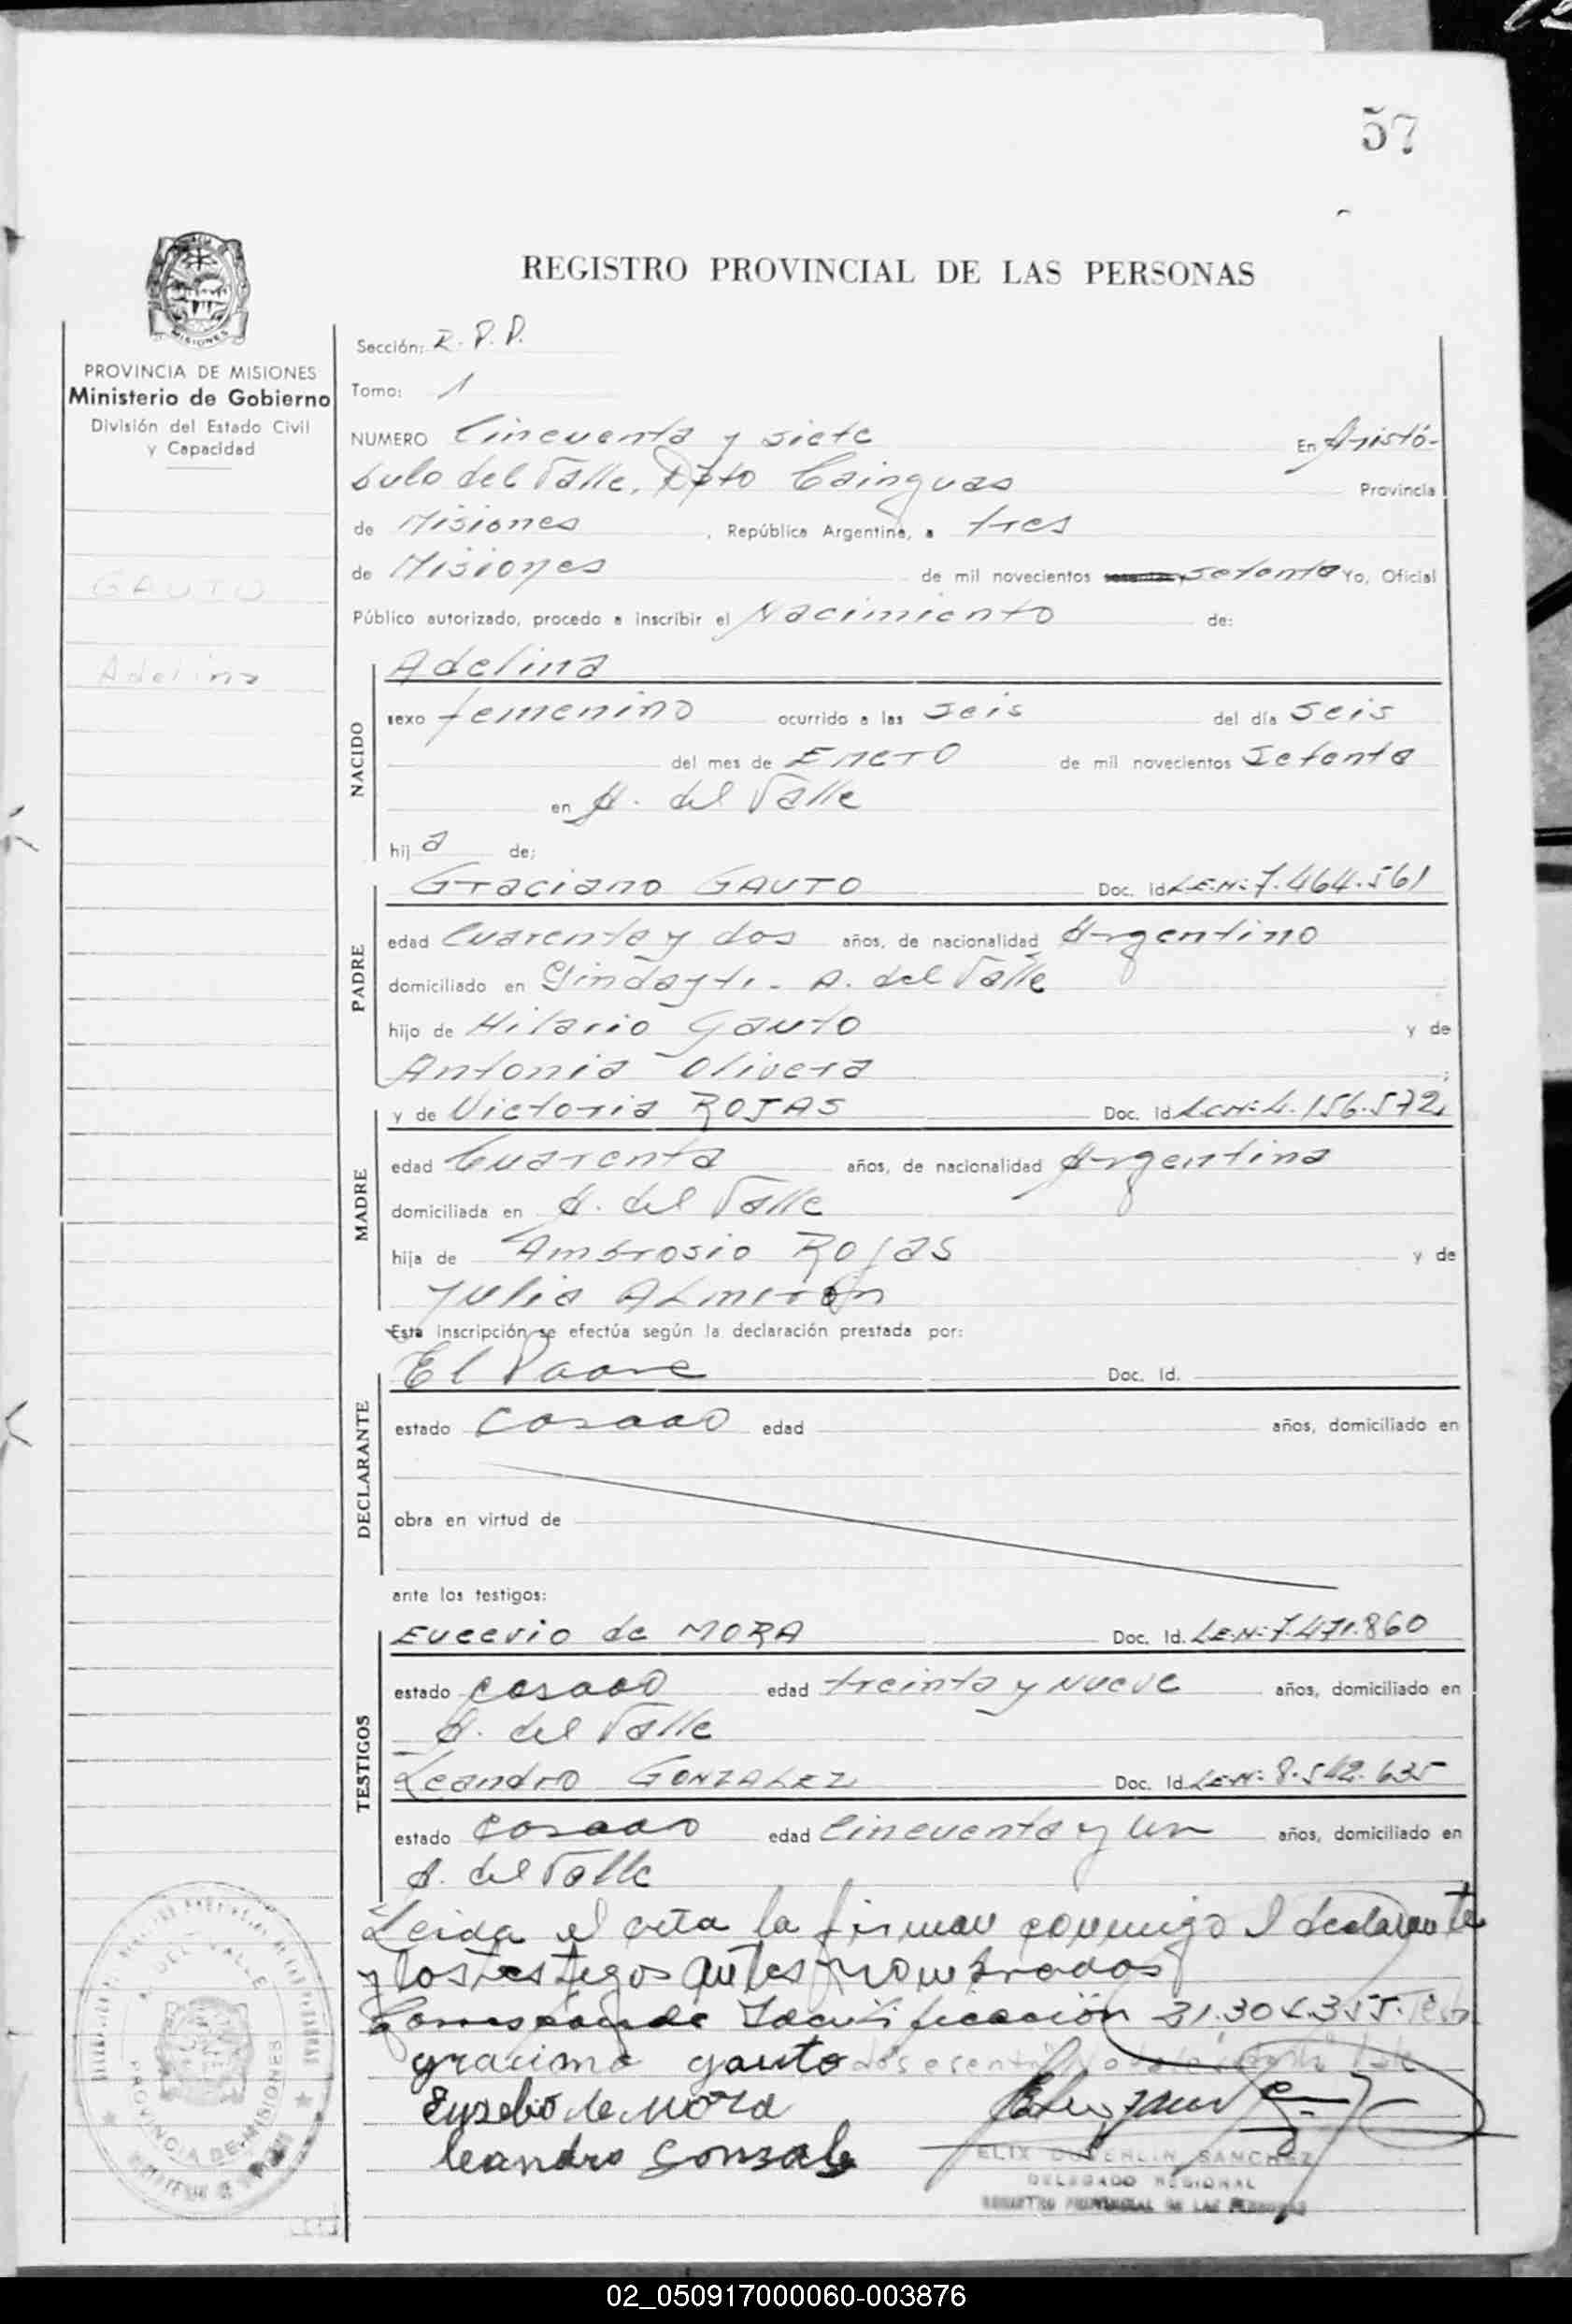 57
MISIONES
REGISTRO PROVINCIAL DE LAS PERSONAS
PROVINCIA DE MISIONES
Ministerio de Gobierno
División del Estado Civil
y Capacidad
GAUTO
Adelina
Sección: R.P.P.
Tomo: 1
NUMERO Cincuenta y siete En Aristó-
bulo del Valle, Dpto Cainguas Provincia
de Misiones, República Argentina, a tres
de Misiones de mil novecientos setenta Yo, Oficial
Público autorizado, procedo a inscribir el Nacimiento de:
NACIDO
Adelina
sexo femenino ocurrido a las seis del día seis
del mes de Enero de mil novecientos setenta
en A. del Valle
hija de:
PADRE
Graciano GAUTO Doc. Id L.E.N: 7.464.561
edad Cuarenta y dos años, de nacionalidad Argentino
domiciliado en A. del Valle
hijo de Hilario Gauto y de
Antonia Olivera
MADRE
y de Victoria ROJAS Doc. Id L.C.N: 4.156.572
edad Cuarenta años, de nacionalidad Argentina
domiciliada en A. del Valle
hija de Ambrosio Rojas y de
Julia ALmirón
Esta inscripción se efectúa según la declaración prestada por:
DECLARANTE
El Padre Doc. Id.
estado Casado edad años, domiciliado en
obra en virtud de
ante los testigos:
TESTIGOS
Eucevio de MORA Doc. Id. L.E.N: 7.471.860
estado casado edad treinta y nueve años, domiciliado en
A. del Valle
Leandro GONZALEZ Doc. Id. L.E.N: 8.542.635
estado Casado edad Cincuenta y un años, domiciliado en
A. del Valle
Leida el acta la firman conmigo el declarante
y los testigos antes nombrados
Corresponde Identificación 21.304.355.
graciano gauto
Eusebio de Mora
leandro Gonzale
SANCHEZ
DELEGADO REGIONAL
REGISTRO PROVINCIAL DE LAS PERSONAS
A. DEL VALLE
PROVINCIA DE MISIONES
02_050917000060-003876